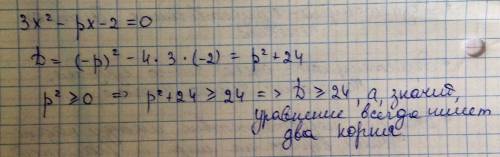 3x² - px - 2 = 0
D = (-p)² - 4·3·(-2) = p² + 24
p² ≥ 0 => p² + 24 ≥ 24 => D ≥ 24, а, значит,
уравнение всегда имеет
два корня.